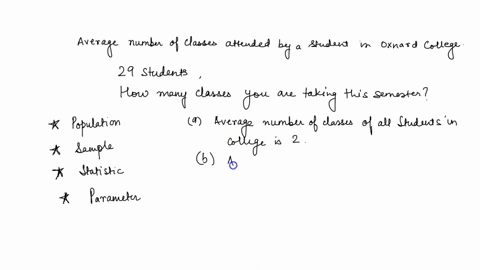 Average number of classes attended by a student in Oxnard College.
29 students,
How many classes you are taking this semester?
★ Population
(a) Average number of classes of all students in
college is 2.
★ Sample
(b) A
★ Statistic
★ Parameter